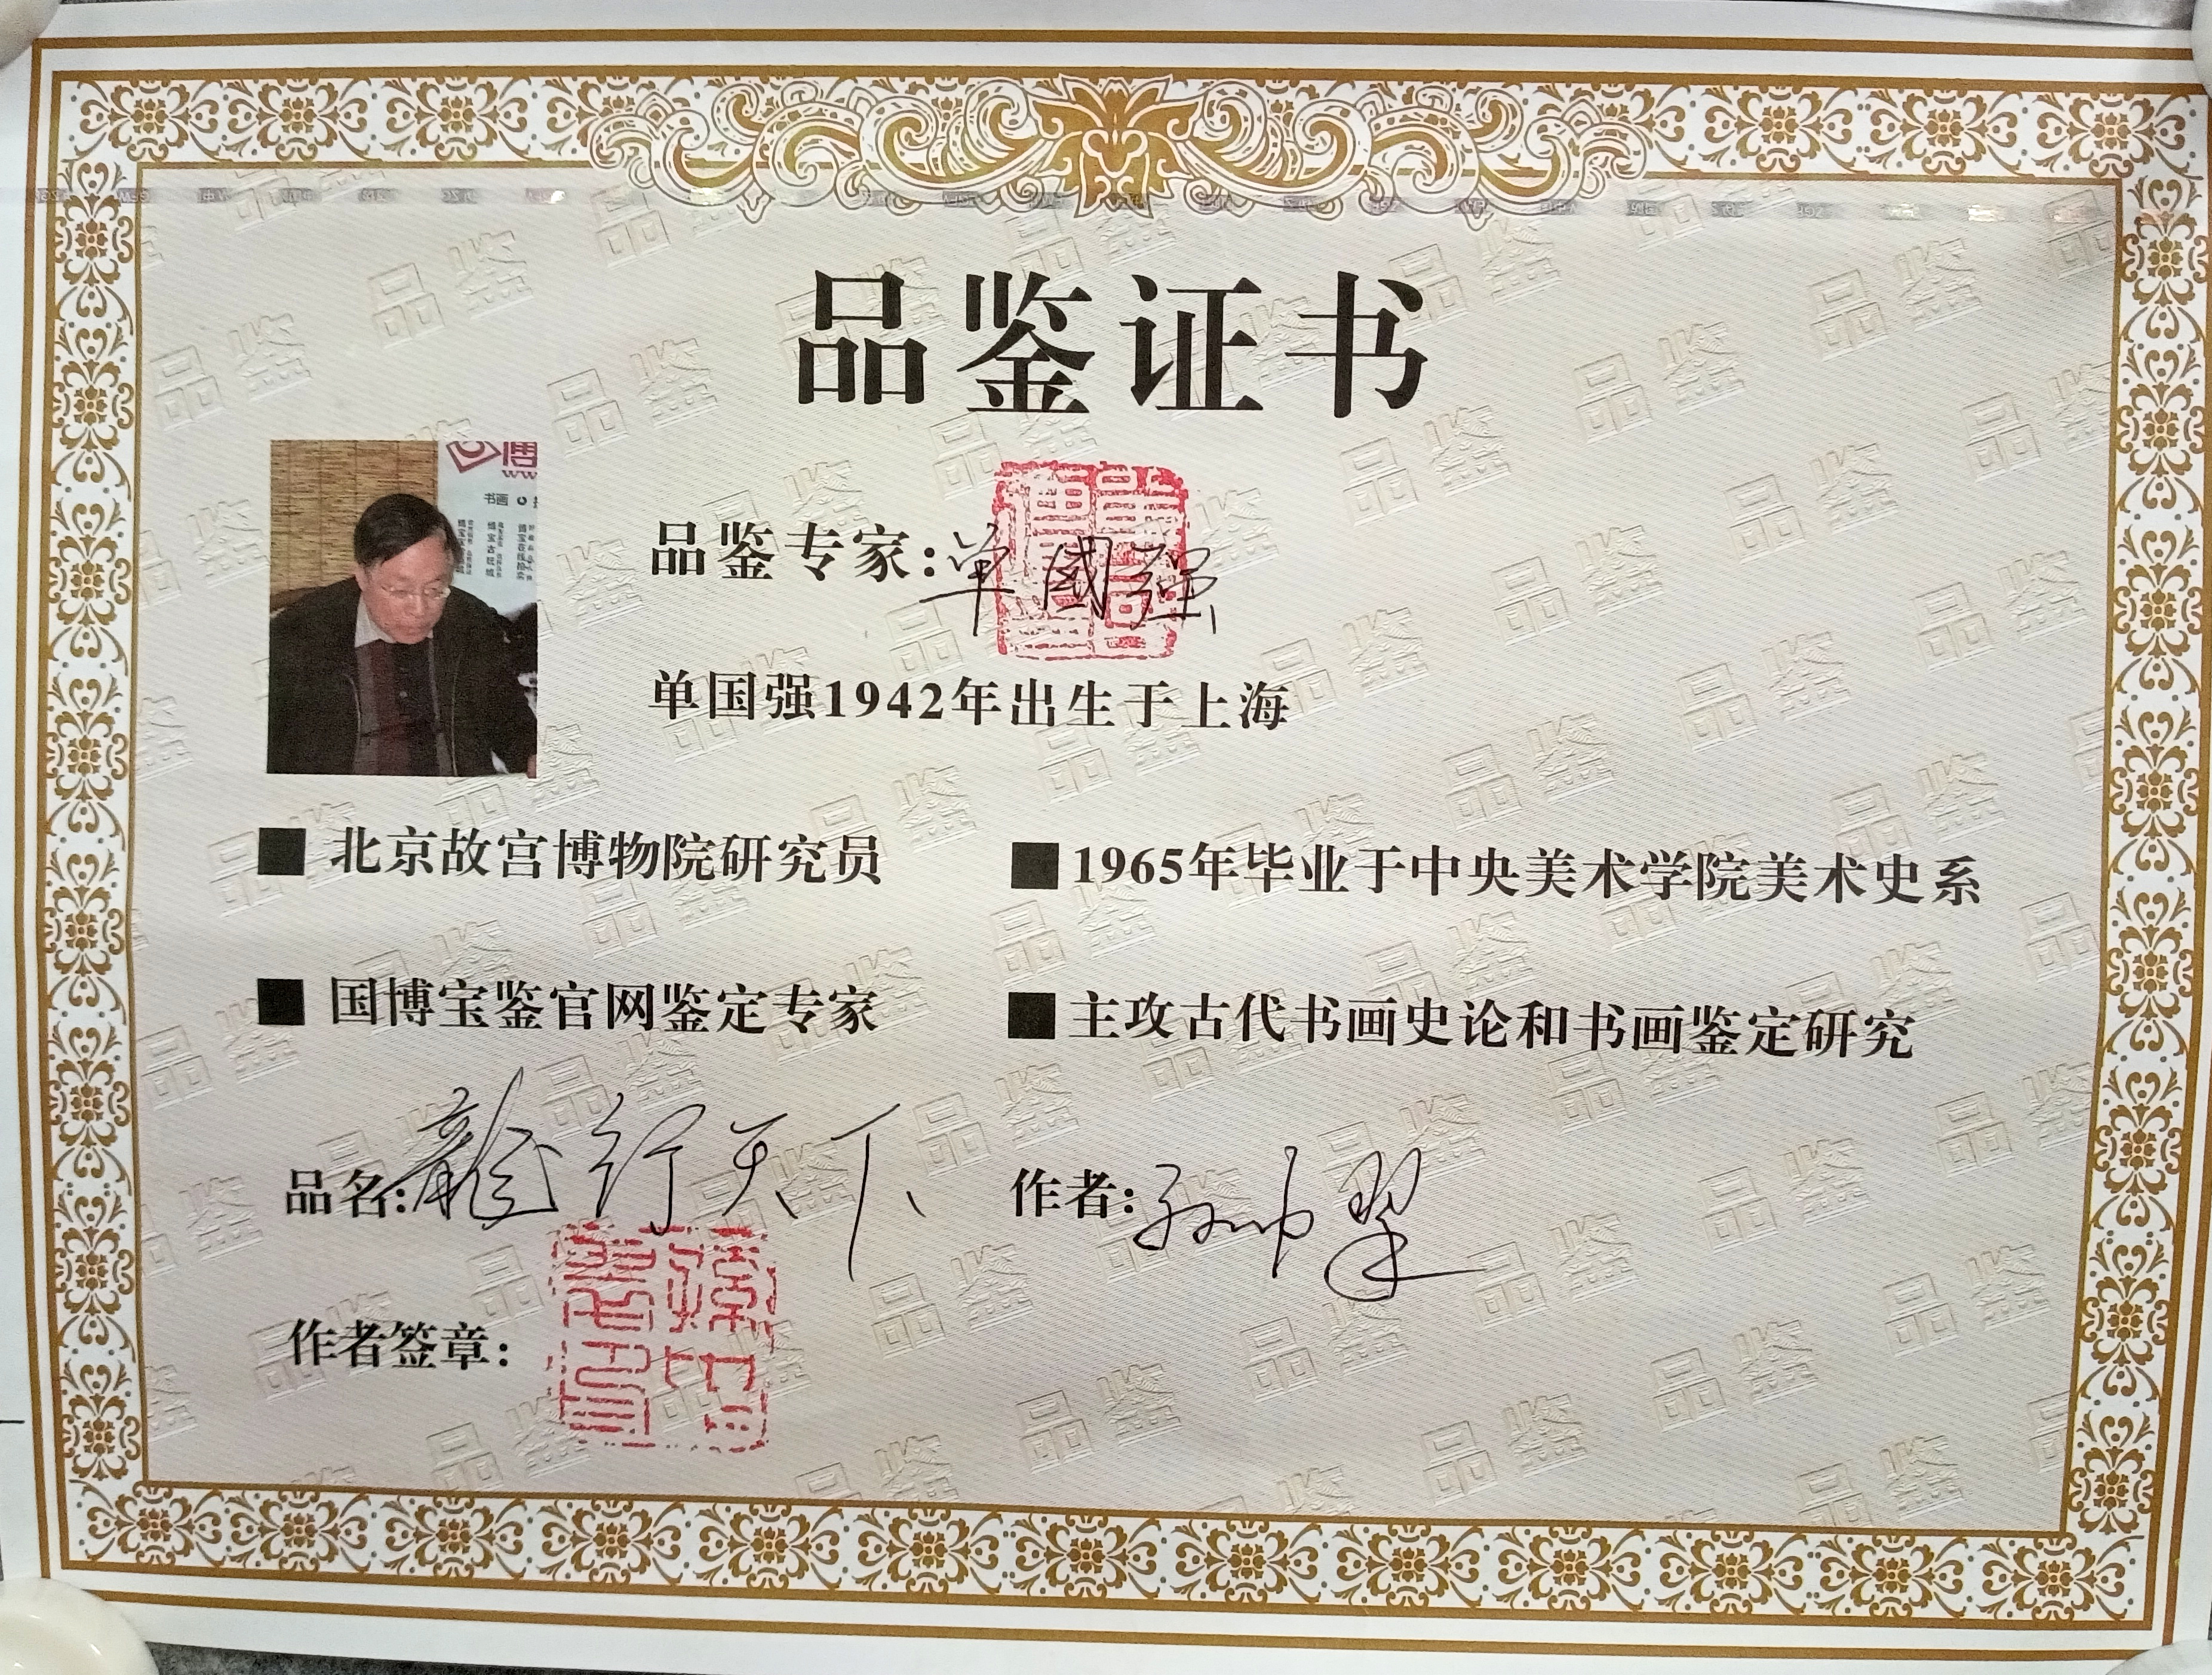 品鉴证书
博
书画
品鉴专家:单國强
单国强1942年出生于上海
■ 北京故宫博物院研究员
■ 1965年毕业于中央美术学院美术史系
■ 国博宝鉴官网鉴定专家
■ 主攻古代书画史论和书画鉴定研究
品名:龍行天下
作者:孙
作者签章: